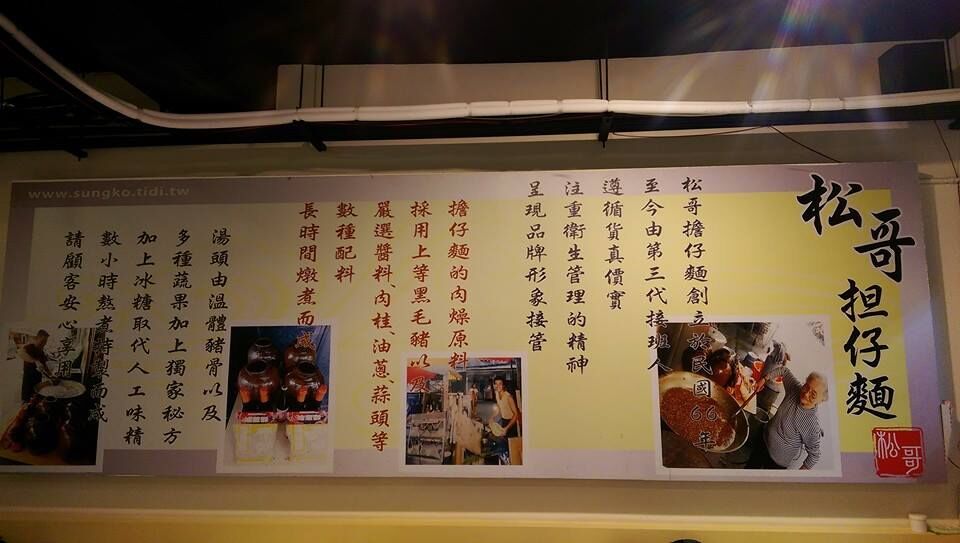 松哥
担仔麵
松哥
松哥擔仔麵創立於民國66年
至今由第三代接班人
遵循貨真價實
注重衛生管理的精神
呈現品牌形象接管
擔仔麵的肉燥原料
採用上等黑毛豬以及
嚴選醬料、肉桂、油蔥、蒜頭等
數種配料
長時間燉煮而成
湯頭由溫體豬骨以及
多種蔬果加上獨家秘方
加上冰糖取代人工味精
數小時熬煮特製而成
請顧客安心享用
www.sungko.tidi.tw